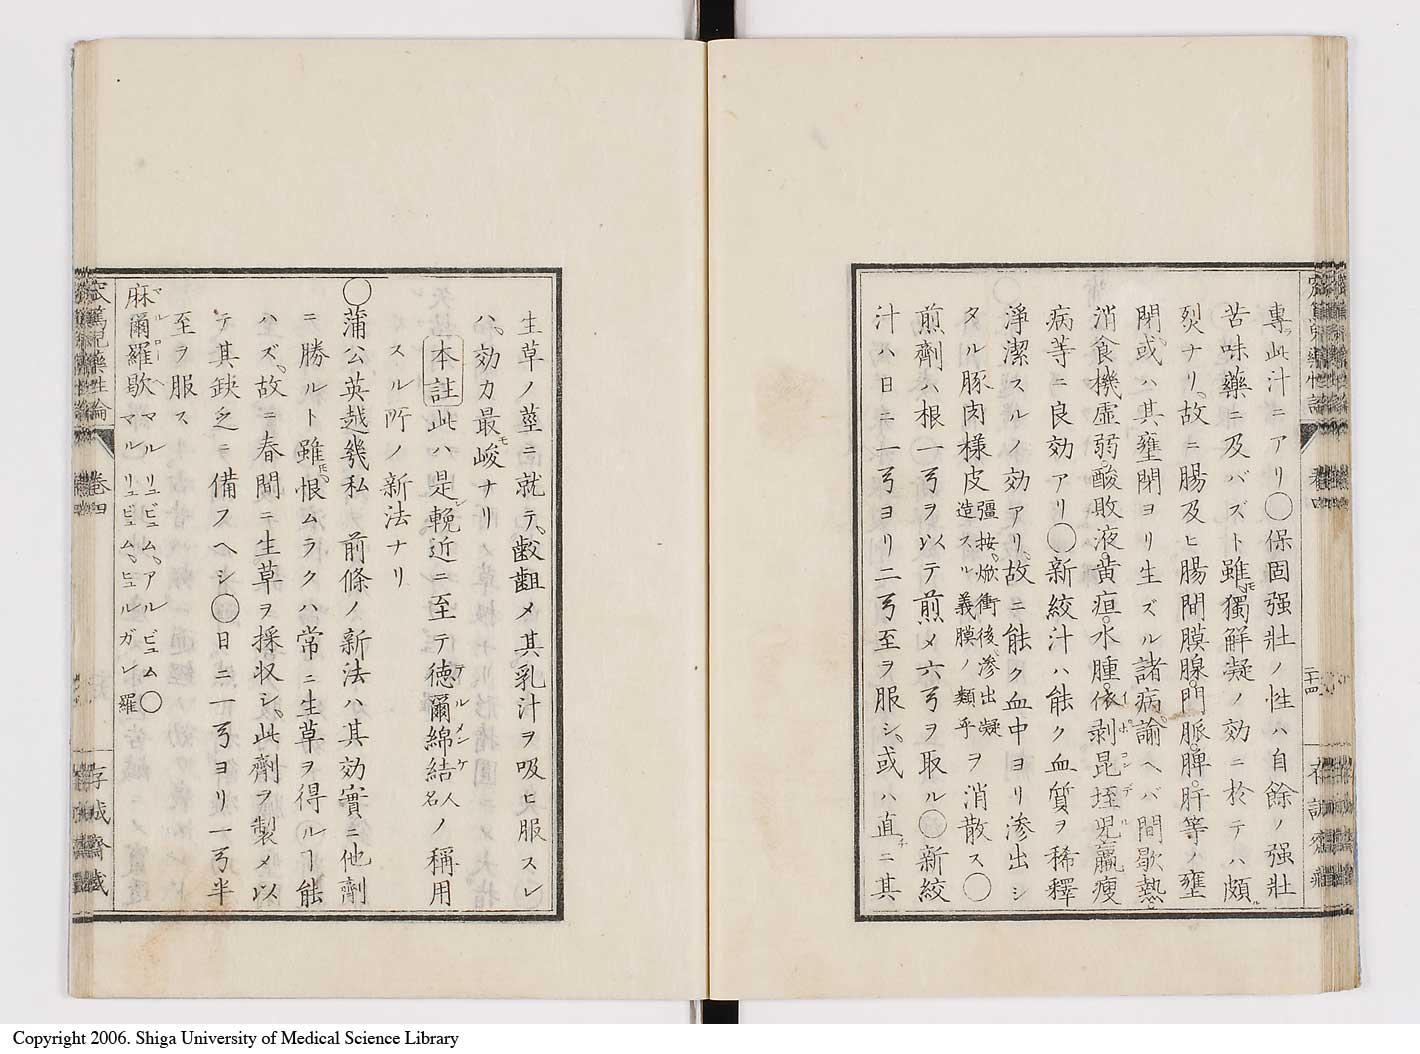 專ラ此汁ニアリ〇保固强壯ノ性ハ自餘ノ强壯
苦味藥ニ及バズト雖モ獨解凝ノ効ニ於テハ頗ル
烈ナリ、故ニ腸及ヒ腸間膜腺。門脈。脾。肝等ノ壅
閉、或ハ其壅閉ヨリ生ズル諸病、諭ヘバ間歇熱
消食機虚弱。酸敗液。黄疸。水腫。依剥昆垤児。羸瘦
イポコンデル
病等ニ良効アリ〇新絞汁ハ能ク血質ヲ稀釋
淨潔スルノ効アリ、故ニ能ク血中ヨリ滲出シ
タル豚肉樣皮
彊按、焮衝後、滲出凝
造スル義膜ノ類乎
ヲ消散ス〇
煎劑ハ根一弓ヲ以テ煎メ六弓ヲ取ル〇新絞
汁ハ日ニ一弓ヨリ二弓至ヲ服シ、或ハ直チニ其
生草ノ莖ニ就テ、齩齟メ其乳汁ヲ吸ヒ服スレ
ハ、効力最モ峻ナリ
本註 此ハ是レ輓近ニ至テ德爾綿結人名ノ稱用
デルメンケ
スル所ノ新法ナリ
〇蒲公英越幾私 前條ノ新法ハ其効實ニ他劑
ニ勝ルト雖モ、恨ムラクハ常ニ生草ヲ得ルヿ能
ハズ、故ニ春間ニ生草ヲ採収シ、此劑ヲ製メ以
テ其鈌乏ニ備フヘシ〇日ニ一弓ヨリ一弓半
至ヲ服ス
麻爾羅歇
マルローヘ
マルリュビユム、アルビュム〇
マルリュビュム、ヒュルガレ羅
卷四
二十四
卷四
存誠齋藏